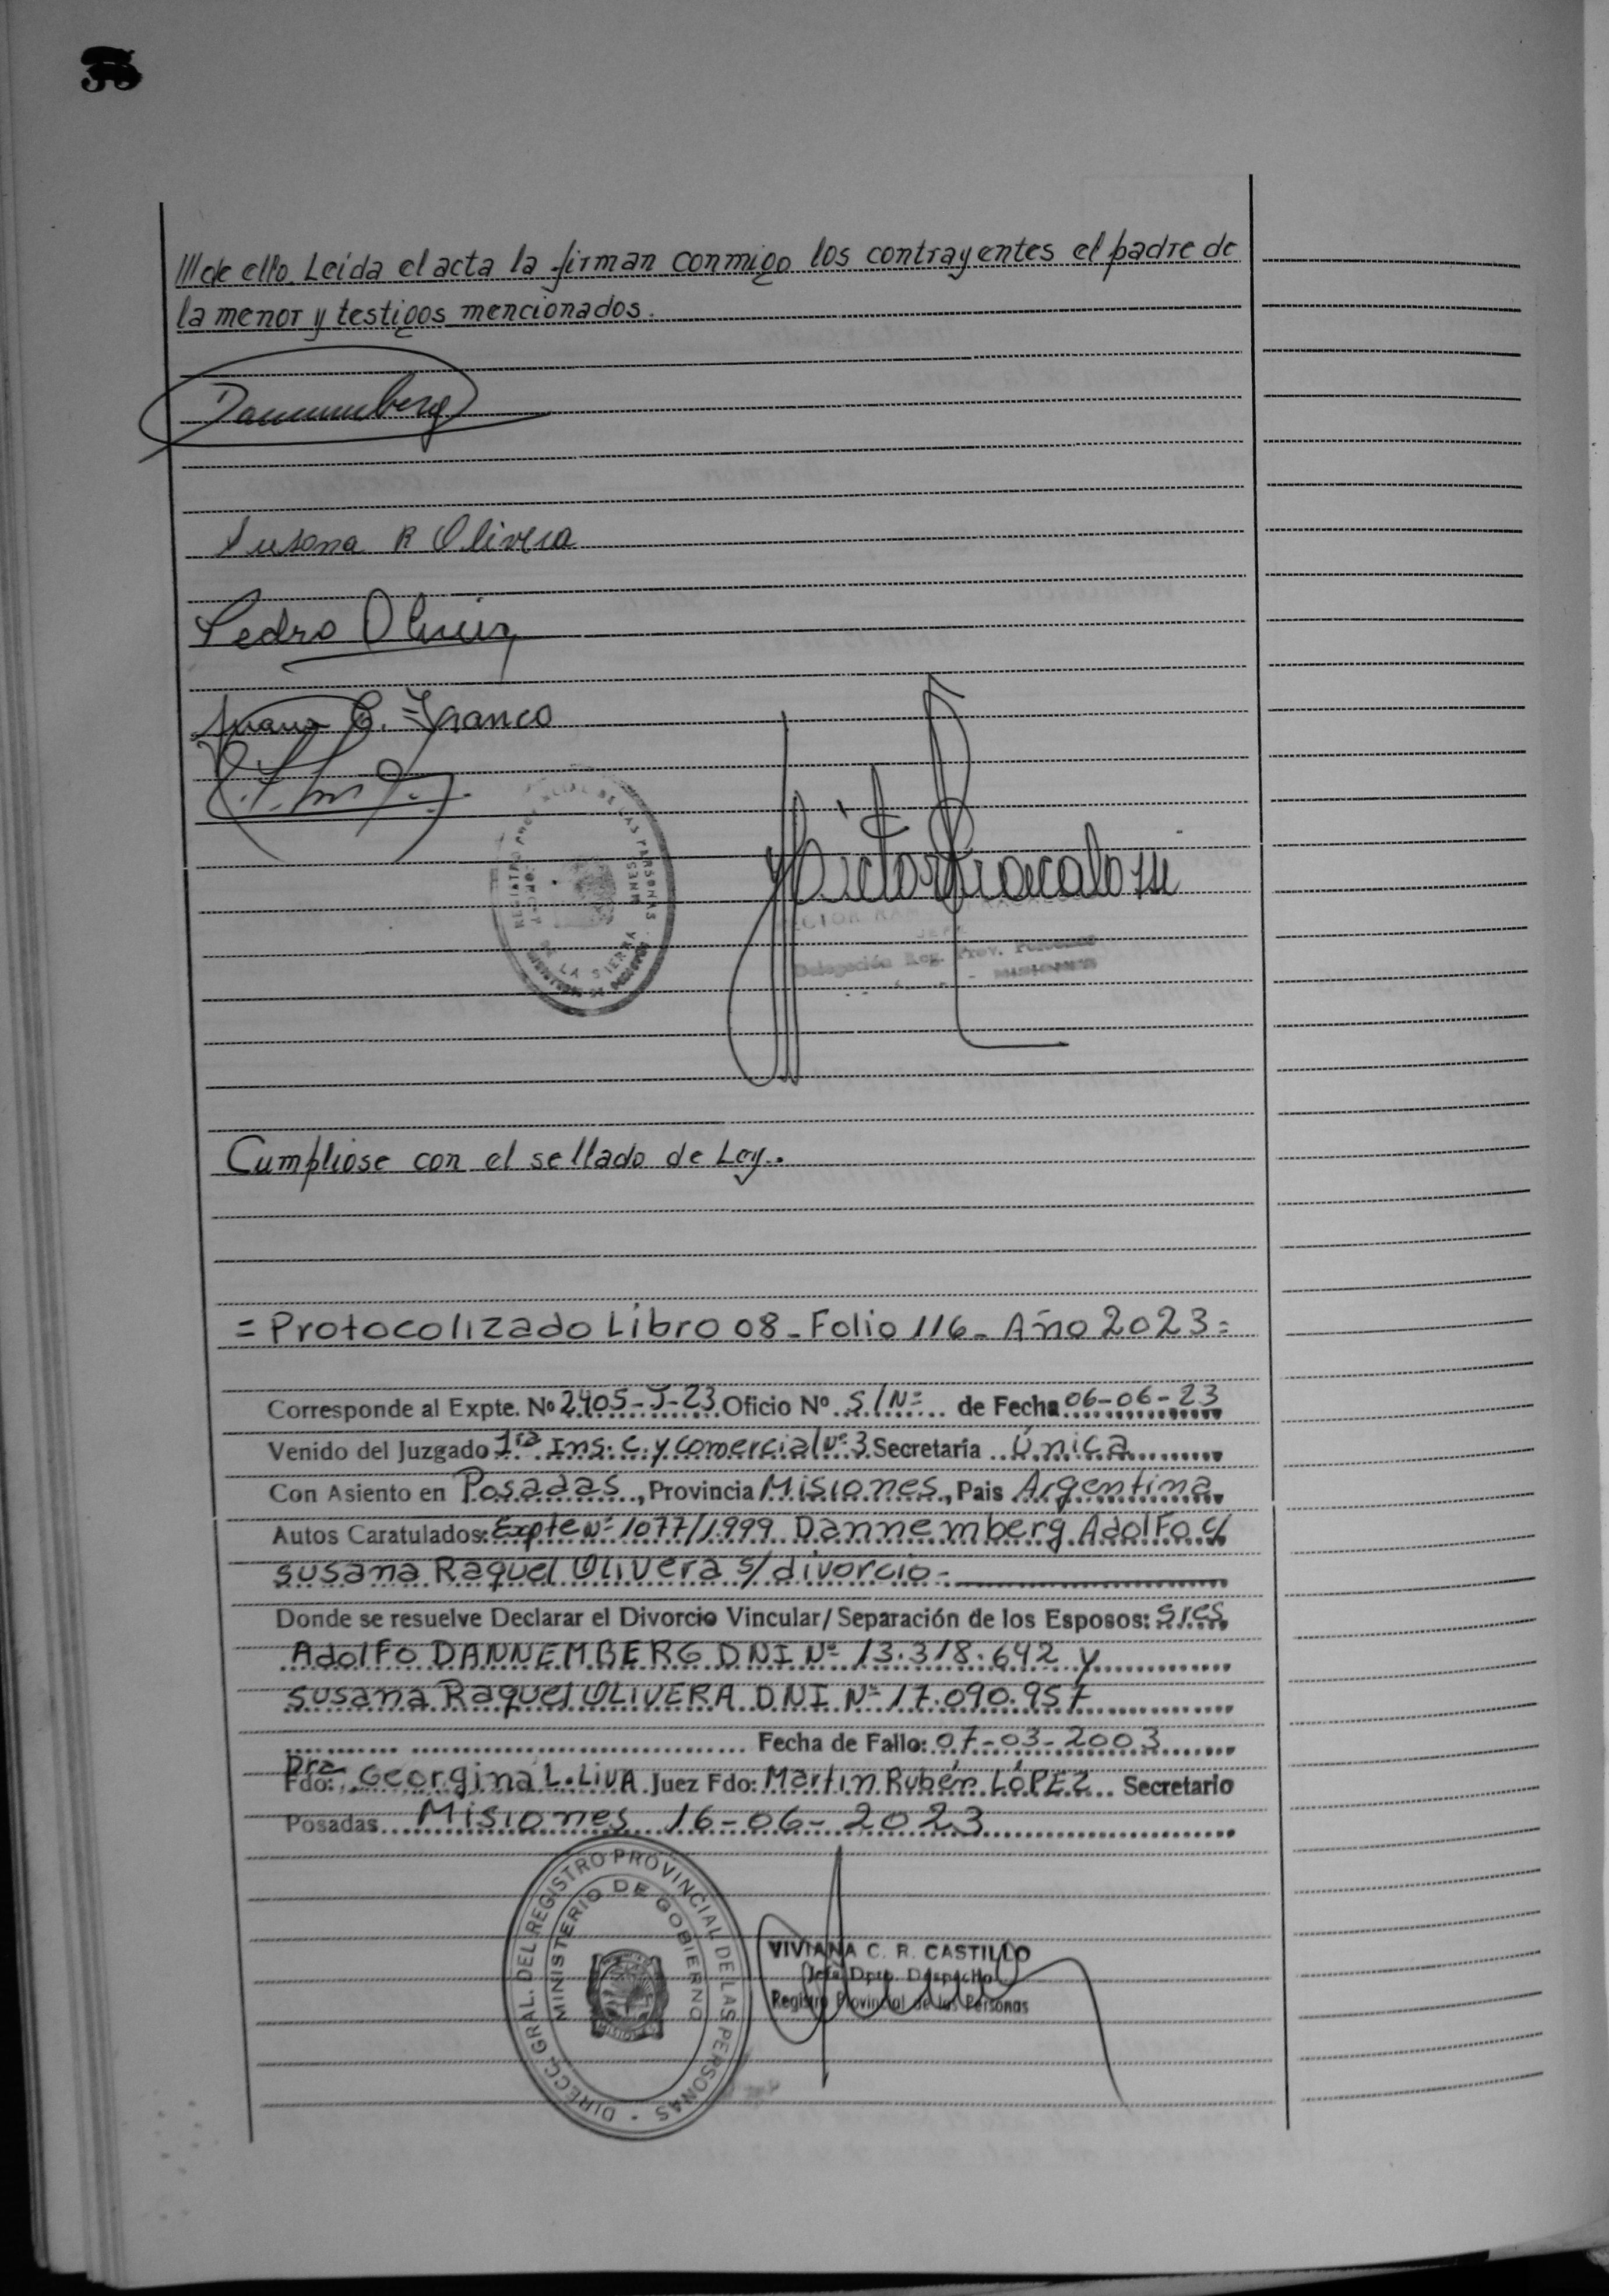 ///de ello. Leida el acta la firman conmigo los contrayentes el padre de
la menor y testigos mencionados.
Dannemberg
Susana R Olivera
Pedro Olivera
Juana C. Franco
REGISTRO PROVINCIAL DE LAS PERSONAS
MISIONES
DE LA SIERRA
Victor Fracalossi
JEFE
Delegación Reg. Prov. Personas
- MISIONES
Cumpliose con el sellado de Ley.
= Protocolizado Libro 08 - Folio 116 - Año 2023 =
Corresponde al Expte. Nº 2405-J-23 Oficio Nº S/Nº de Fecha 06-06-23
Venido del Juzgado 1ra Ins. C. y Comercial Nº 3 Secretaría Única
Con Asiento en Posadas, Provincia Misiones, Pais Argentina
Autos Caratulados: Expte Nº 1077/1999 Dannemberg Adolfo c/
Susana Raquel Olivera s/ divorcio-
Donde se resuelve Declarar el Divorcio Vincular/Separación de los Esposos: Sres
Adolfo DANNEMBERG DNI Nº 13.318.642 y
Susana Raquel OLIVERA DNI Nº 17.090.957
Fecha de Fallo: 07-03-2003
Fdo: Dra Georgina L. LIVA Juez Fdo: Martin Rubén LÓPEZ Secretario
Posadas Misiones 16-06-2023
DIRECC. GRAL. DEL REGISTRO PROVINCIAL DE LAS PERSONAS
MINISTERIO DE GOBIERNO
MISIONES
VIVIANA C. R. CASTILLO
Jefa Dpto. Despacho
Registro Provincial de las Personas